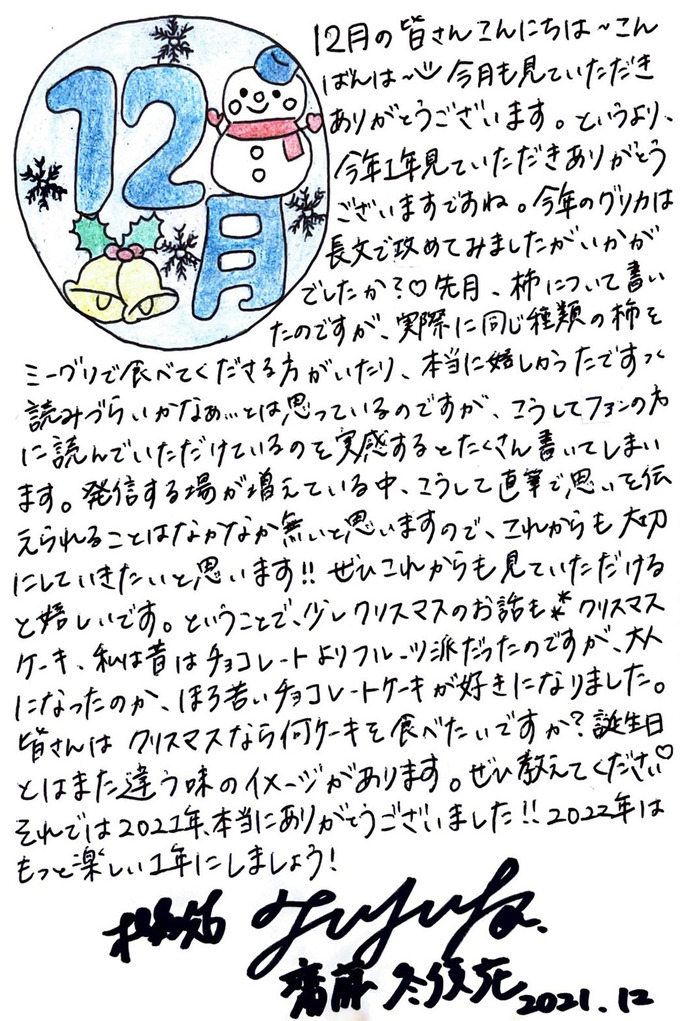 12月
12月の皆さんこんにちは~こん
ばんは~ 今月も見ていただき
ありがとうございます。というより、
今年1年見ていただきありがとう
ございますですね。今年のグリカは
長文で攻めてみましたがいかが
でしたか?♡先月、柿について書い
たのですが、実際に同じ種類の柿を
ミーグリで食べてくださる方がいたり、本当に嬉しかったです
読みづらいかなぁ…とは思っているのですが、こうしてファンの方
に読んでいただけているのを実感するとたくさん書いてしまい
ます。発信する場が増えている中、こうして直筆で思いを伝
えられることはなかなか無いと思いますので、これからも大切
にしていきたいと思います!! ぜひこれからも見ていただける
と嬉しいです。ということで、少しクリスマスのお話も** クリスマス
ケーキ、私は昔はチョコレートよりフルーツ派だったのですが、大人
になったのか、ほろ苦いチョコレートケーキが好きになりました。
皆さんは クリスマスなら何ケーキを食べたいですか?誕生日
とはまた違う味のイメージがあります。ぜひ教えてください♡
それでは2021年、本当にありがとうございました!! 2022年は
もっと楽しい1年にしましょう!
齋藤 冬優花 2021.12